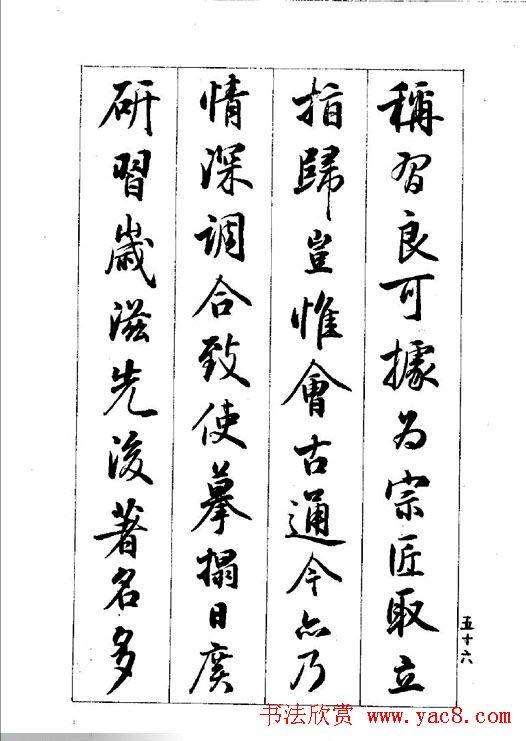 稱習良可據為宗匠取立
指歸豈惟會古通今亦乃
情深調合致使摹搨日廣
研習歲滋先後著名多
五十六
书法欣赏 www.yac8.com